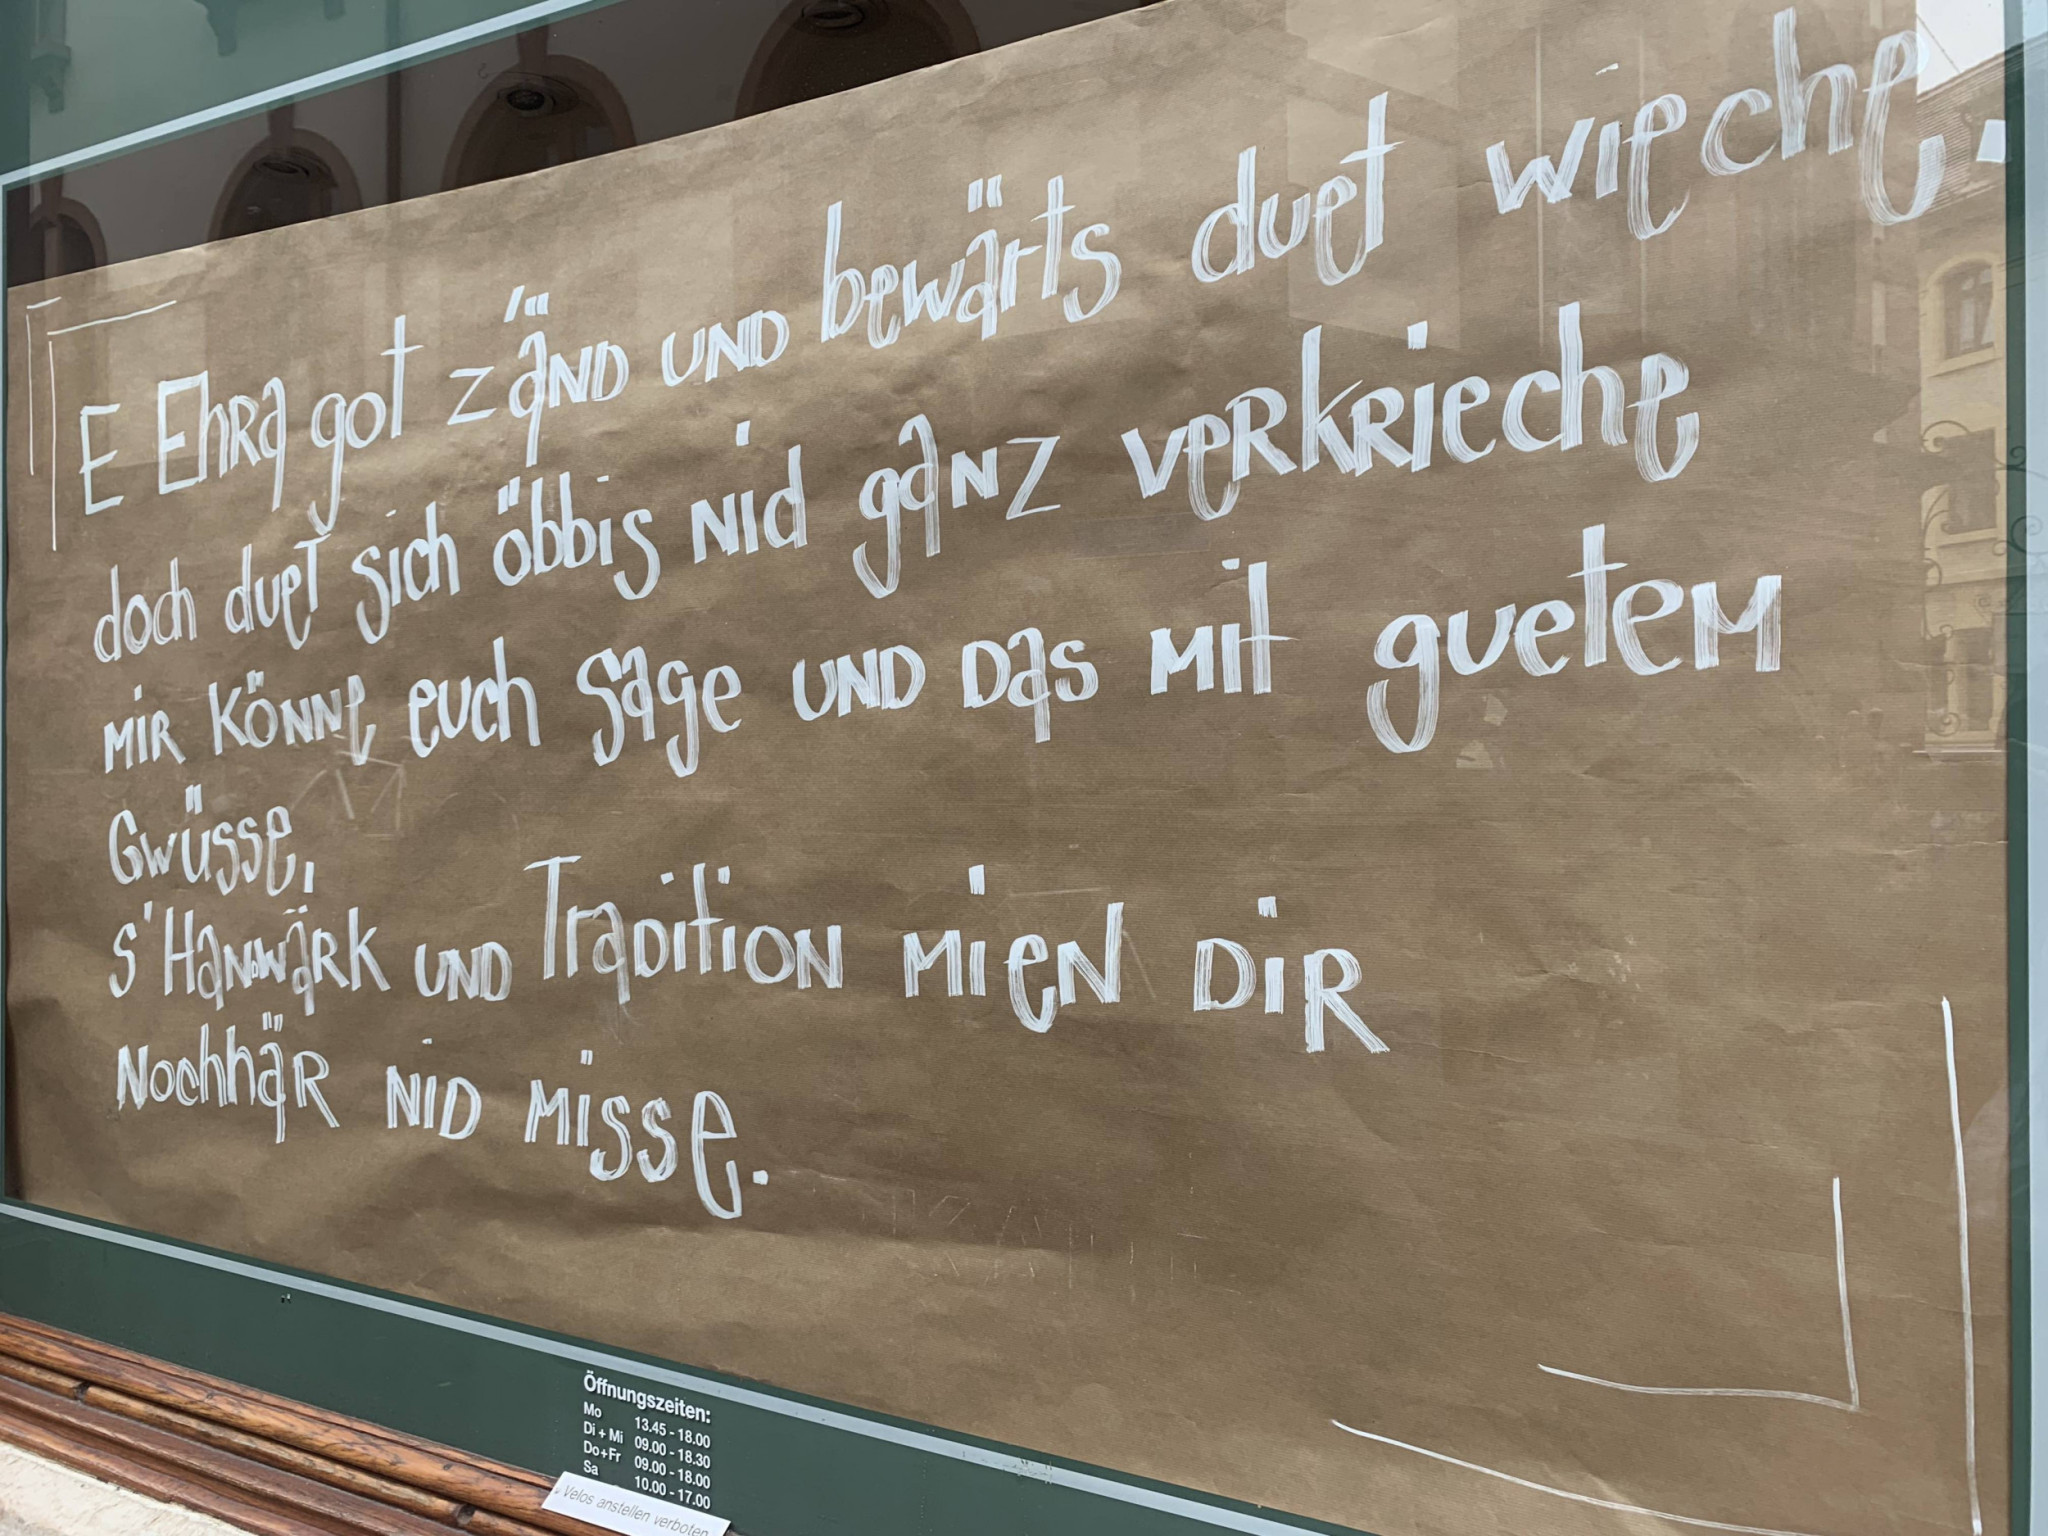 E Ehra got z'änd und bewärts duet wieche.
doch duet sich öbbis nid ganz verkrieche
mir könne euch sage und das mit guetem
Gwüsse,
s'Handwärk und Tradition mien dir
nochhär nid misse.
Öffnungszeiten:
Mo 13.45 - 18.00
Di + Mi 09.00 - 18.30
Do + Fr 09.00 - 18.00
Sa 10.00 - 17.00
Velos anstellen verboten